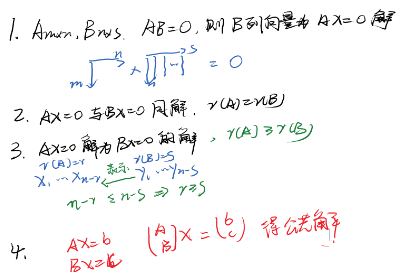 1. Am×n, Bn×s. AB=0, 则B列向量为AX=0解
m n × s = 0
2. AX=0与BX=0同解, r(A)=r(B)
3. AX=0解为BX=0的解, r(A)≥r(B)
r(A)=r 表示 r(B)=s
X₁…Xn-r Y₁…Yn-s
n-r ≤ n-s ⇒ r≥s
4. AX=b
BX=c
(A B)X=(b c) 得公共解